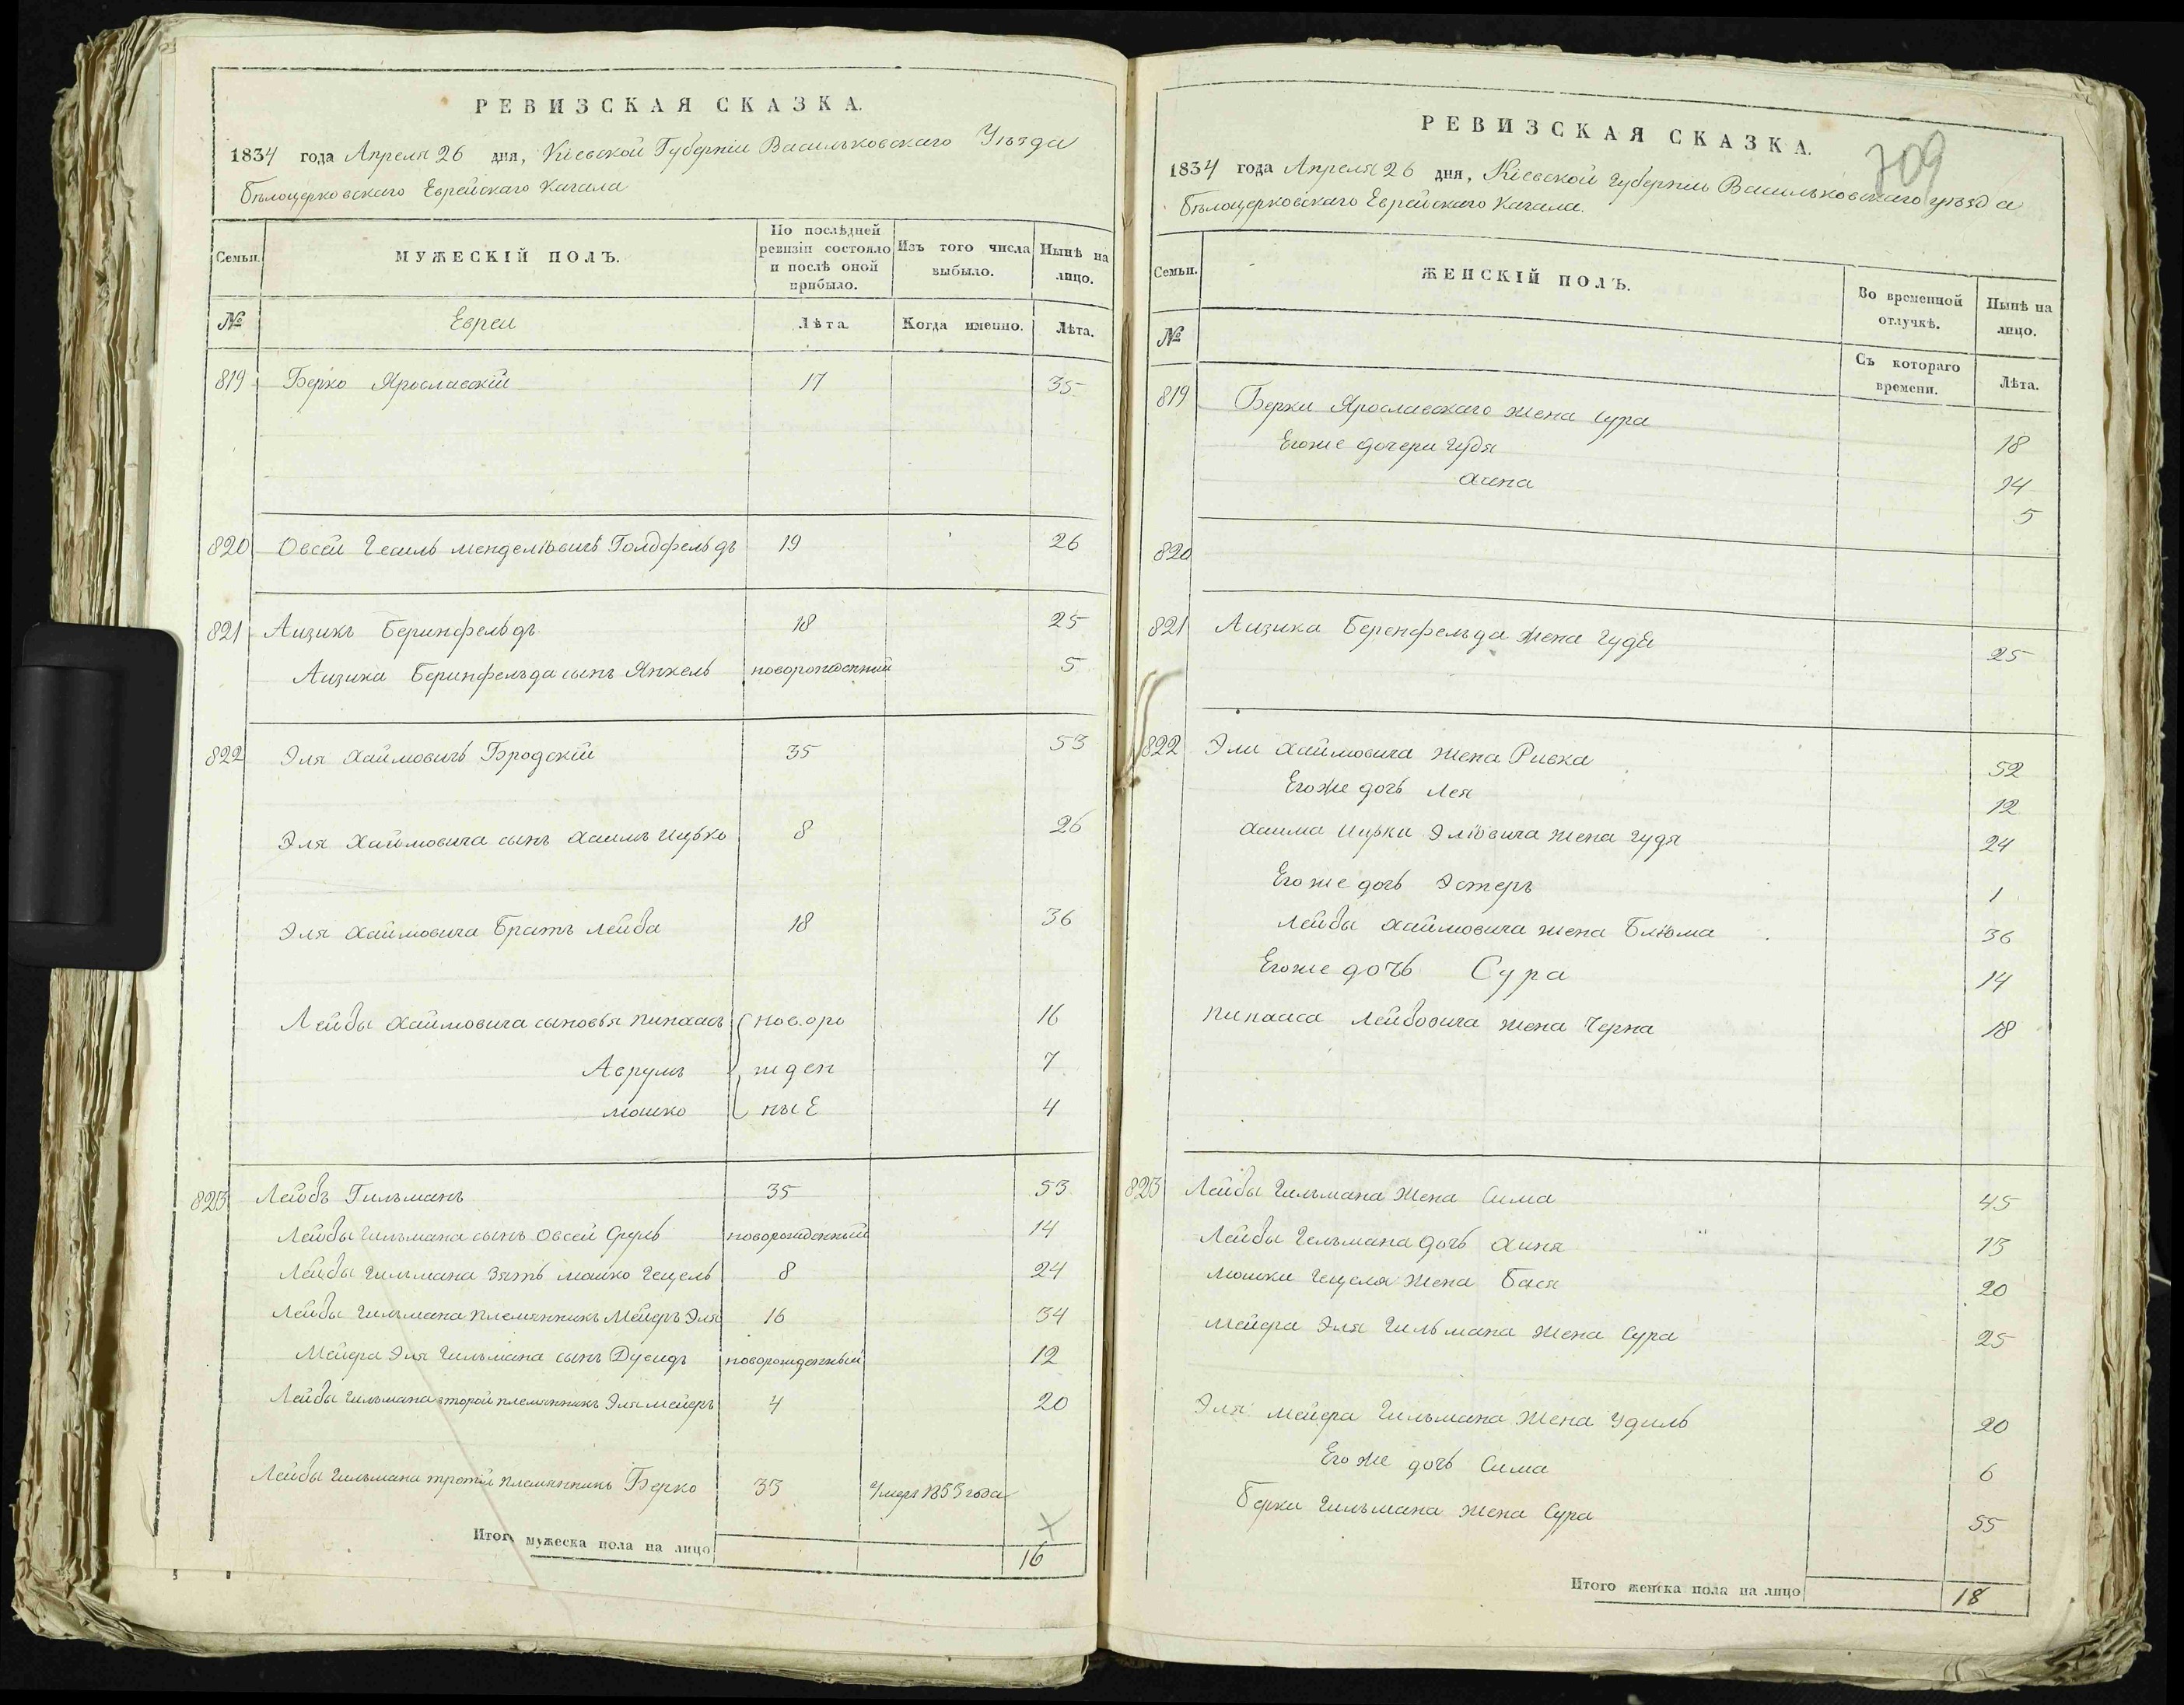 РЕВИЗСКАЯ СКАЗКА.
1834 года Апреля 26 дня, Кіевской Губерніи Васильковскаго Уѣзда
Бѣлоцерковскаго Еврейскаго Кагала
Семьи. МУЖЕСКІЙ ПОЛЪ. По послѣдней ревизіи состояло и послѣ оной прибыло. Изъ того числа выбыло. Нынѣ на лицо.
№ Евреи Лѣта. Когда именно. Лѣта.
819 Берко Ярославскій 17 35
820 Овсей Гесиль Менделіовичъ Голдфельдъ 19 26
821 Аизикъ Беринфельдъ 18 25
Аизика Беринфельда сынъ Янкель новорожденный 5
822 Эля Хаймовичъ Бродскій 35 53
Эля Хаймовича сынъ Хаимъ Ицько 8 26
Эля Хаймовича Братъ Лейба 18 36
Лейбы Хаймовича сыновья Пинхасъ новоро 16
Аврумъ жден 7
Мошко ные 4
823 Лейбъ Гильманъ 35 53
Лейбы Гильмана сынъ Овсей Сруль новорожденный 14
Лейбы Гильмана Зять Мошко Гецель 8 24
Лейбы Гильмана племянникъ Мейеръ Эля 16 34
Мейера Эля Гильмана сынъ Дувидъ новорожденный 12
Лейбы Гильмана второй племянникъ Эля Мейеръ 4 20
Лейбы Гильмана третій племянникъ Берко 35 Умеръ 1833 года
Итого мужеска пола на лицо 16
709
РЕВИЗСКАЯ СКАЗКА.
1834 года Апреля 26 дня, Кіевской Губерніи Васильковскаго уѣзда
Бѣлоцерковскаго Еврейскаго Кагала.
Семьи. ЖЕНСКІЙ ПОЛЪ. Во временной отлучкѣ. Нынѣ на лицо.
№ Съ котораго времени. Лѣта.
819 Берки Ярославскаго жена Сура 18
Егоже дочери Гудя 14
Хина 5
820
821 Аизика Беренфельда жена Гудя 25
822 Эли Хаймовича жена Ривка 52
Егоже дочь Лея 12
Хаима Ицька Эліовича жена Гудя 24
Егоже дочь Эстеръ 1
Лейбы Хаймовича жена Блюма 36
Егоже дочь Сура 14
Пинхаса Лейбовича жена Черна 18
823 Лейбы Гильмана жена Сима 45
Лейбы Гильмана дочь Хиня 13
Мошки Гецеля жена Бася 20
Мейера Эля Гильмана жена Сура 25
Эля Мейера Гильмана жена Удиль 20
Егоже дочь Сима 6
Берки Гильмана жена Сура 55
Итого женска пола на лицо 18